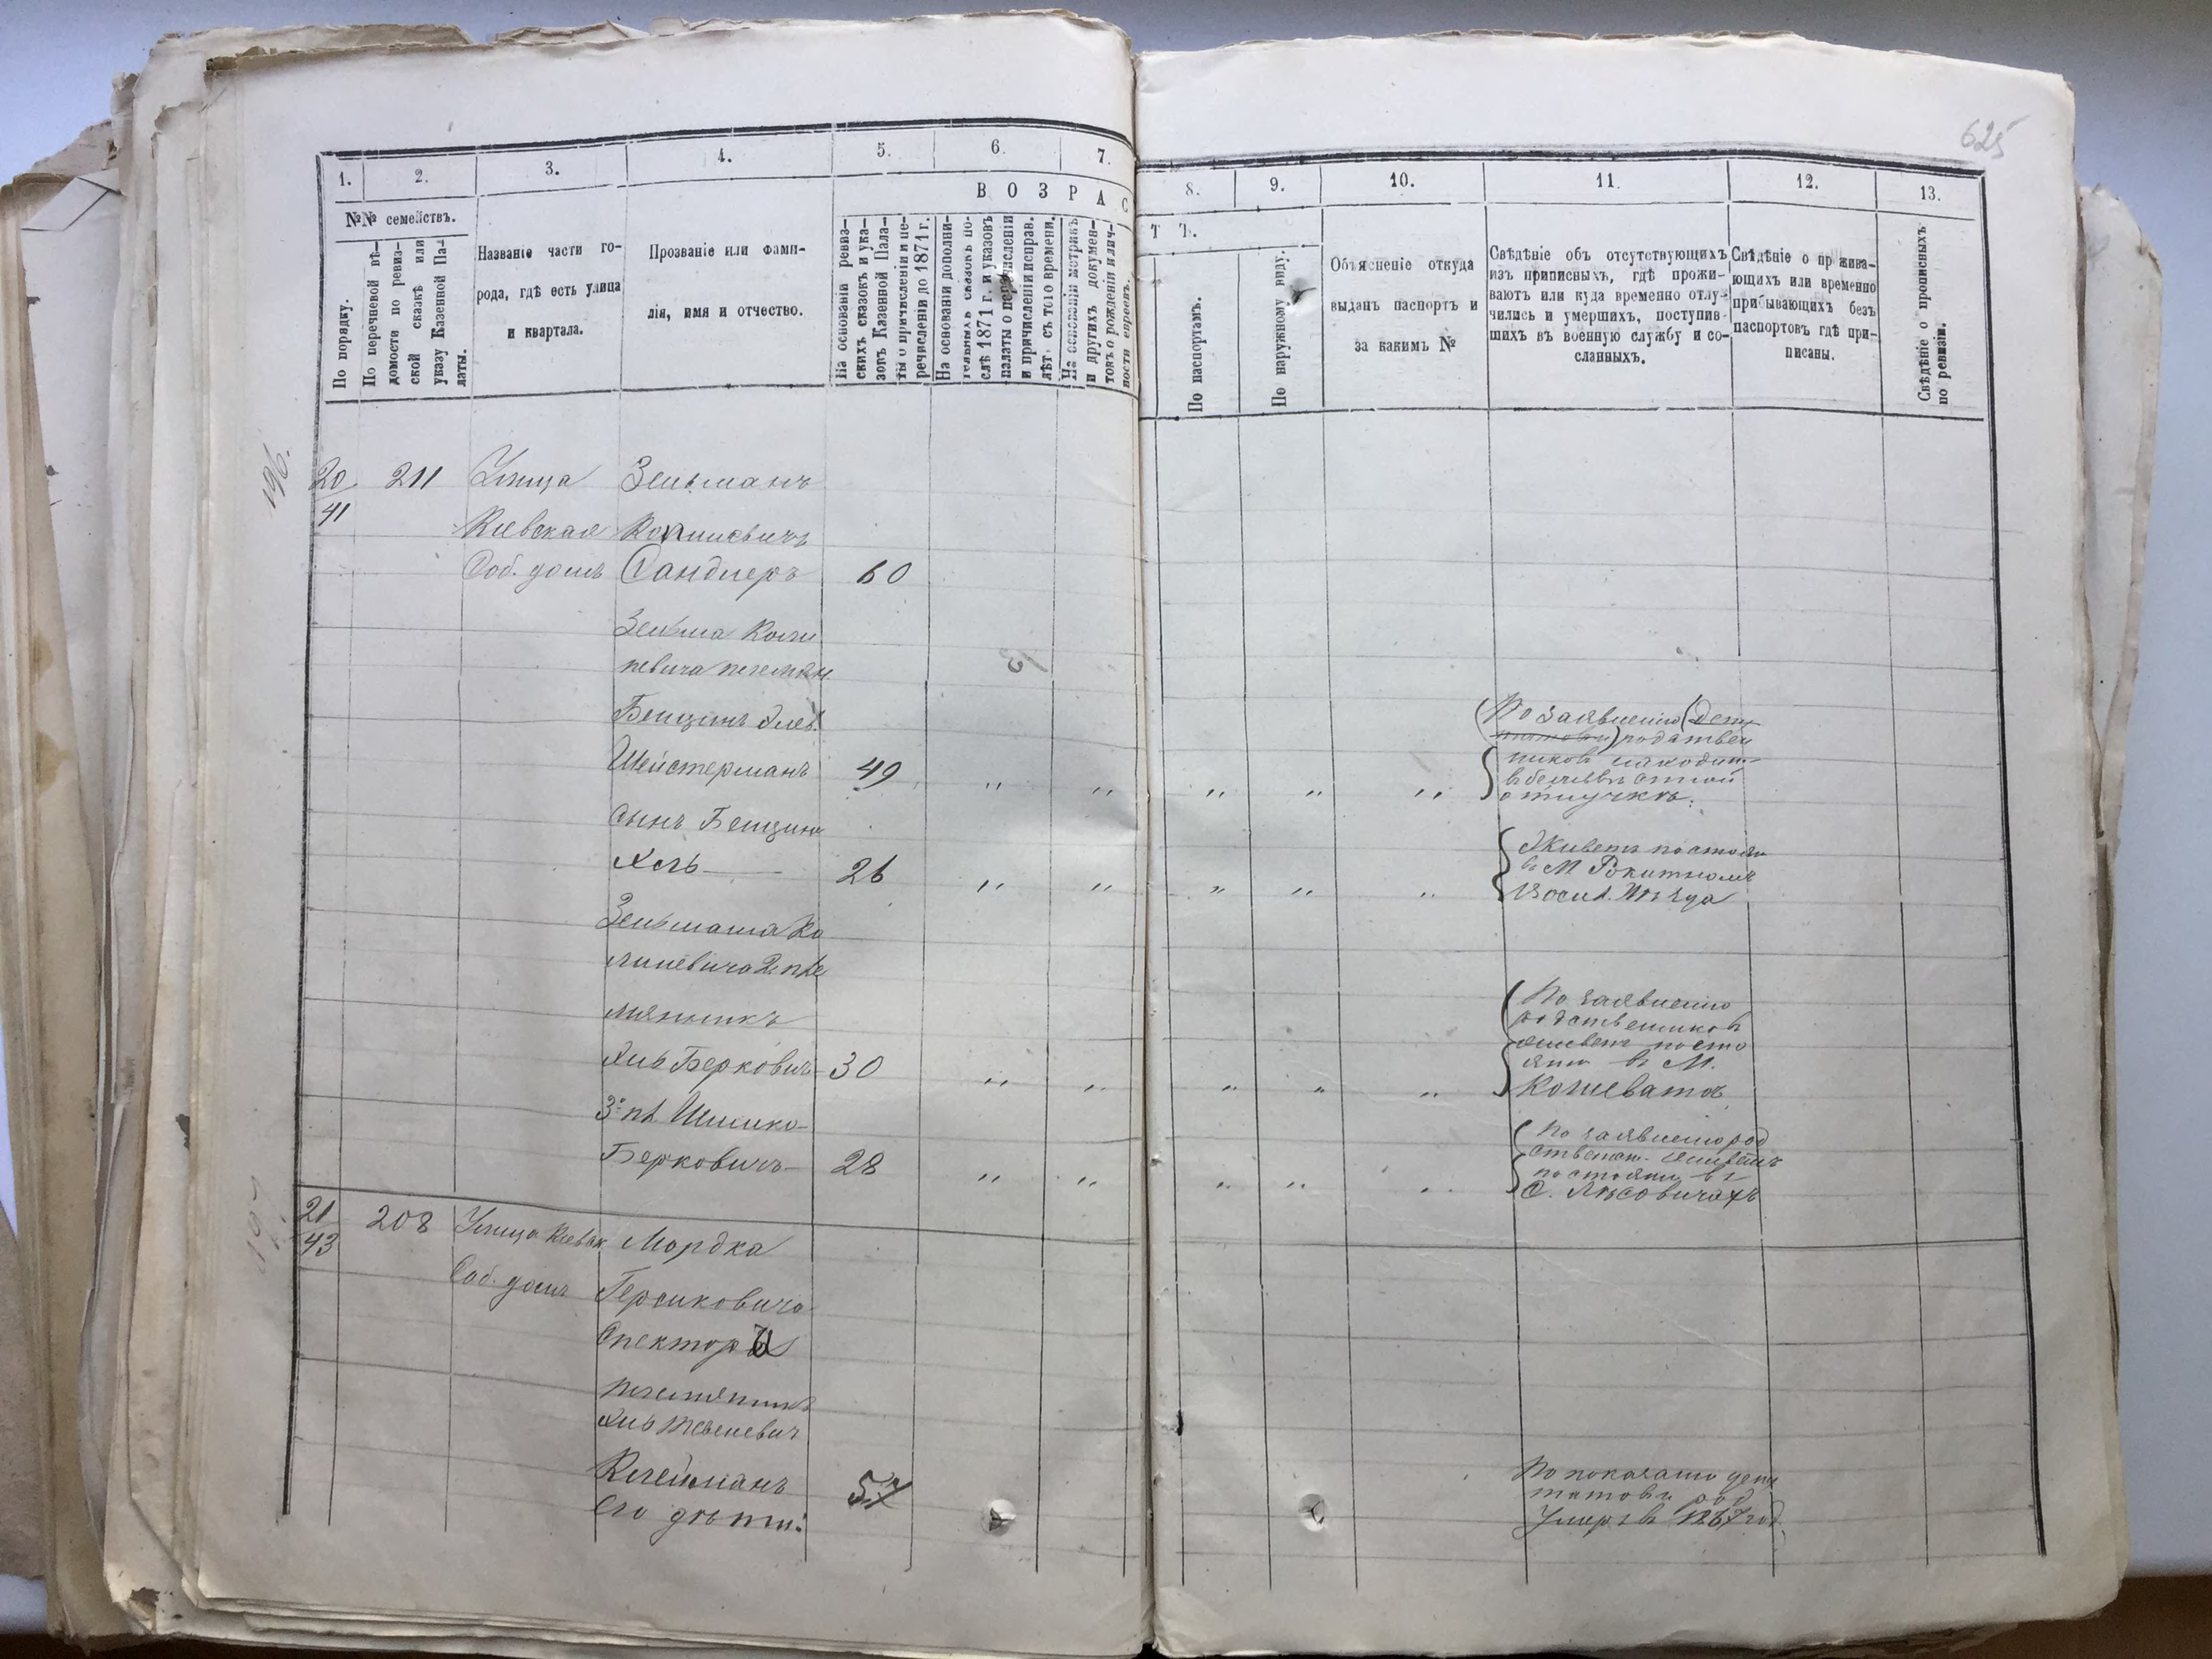 625
1.
2.
3.
4.
5.
6.
7.
8.
9.
10.
11.
12.
13.
В О З Р А С
Т Ъ.
№№ семействъ.
По порядку.
По перечневой вѣ-
домости по ревиз-
ской сказкѣ или
указу Казенной Па-
латы.
Названіе части го-
рода, гдѣ есть улица
и квартала.
Прозваніе или фами-
лія, имя и отчество.
На основаніи ревиз-
скихъ сказокъ и ука-
зовъ Казенной Пала-
ты о причисленіи и пе-
речисленіи до 1871 г.
На основаніи дополни-
тельныхъ сказокъ по-
слѣ 1871 г. и указовъ
палаты о перечисленіи
и причисленіи исправ.
лѣтъ съ того времени.
На основаніи метрикъ
и другихъ докумен-
товъ о рожденіи и лич-
ности евреевъ.
По паспортамъ.
По наружному виду.
Объясненіе откуда
выданъ паспортъ и
за какимъ №
Свѣдѣніе объ отсутствующихъ
изъ приписныхъ, гдѣ прожи-
ваютъ или куда временно отлу-
чились и умершихъ, поступив-
шихъ въ военную службу и со-
сланныхъ.
Свѣдѣніе о прожива-
ющихъ или временно
прибывающихъ безъ
паспортовъ гдѣ при-
писаны.
Свѣдѣніе о прописныхъ
по ревизіи.
196.
20 211 Улица Зельманъ
41
Кіевская
Соб. домъ Сандлеръ 60
Зельма
племян.
Бенционъ
Шейстерманъ 49 " " " " "
По заявленію
родствен
никовъ находит
въ безизвѣстной
отлучкѣ.
сынъ Бенціона
26 " " " " "
Живетъ постоян
въ М Рокитномъ
Васил. Уѣзда
Зельмана Ко
2. пле
мянникъ
Берковичъ 30 " " " " "
По заявленію
родственниковъ
живетъ посто
янно въ М.
Кошеватой
3й пл. Шлико
Берковичъ 28 " " " " "
По заявленію род
ственн. живетъ
постоянн въ
С. Лѣсовичахъ
21 208 Улица Кіевск Мордка
43
Соб. домъ Гершковича
Спектора
племянникъ
Клейманъ 57
Его дѣти:
По показанію депу
татовъ
Умеръ въ 1867 год.